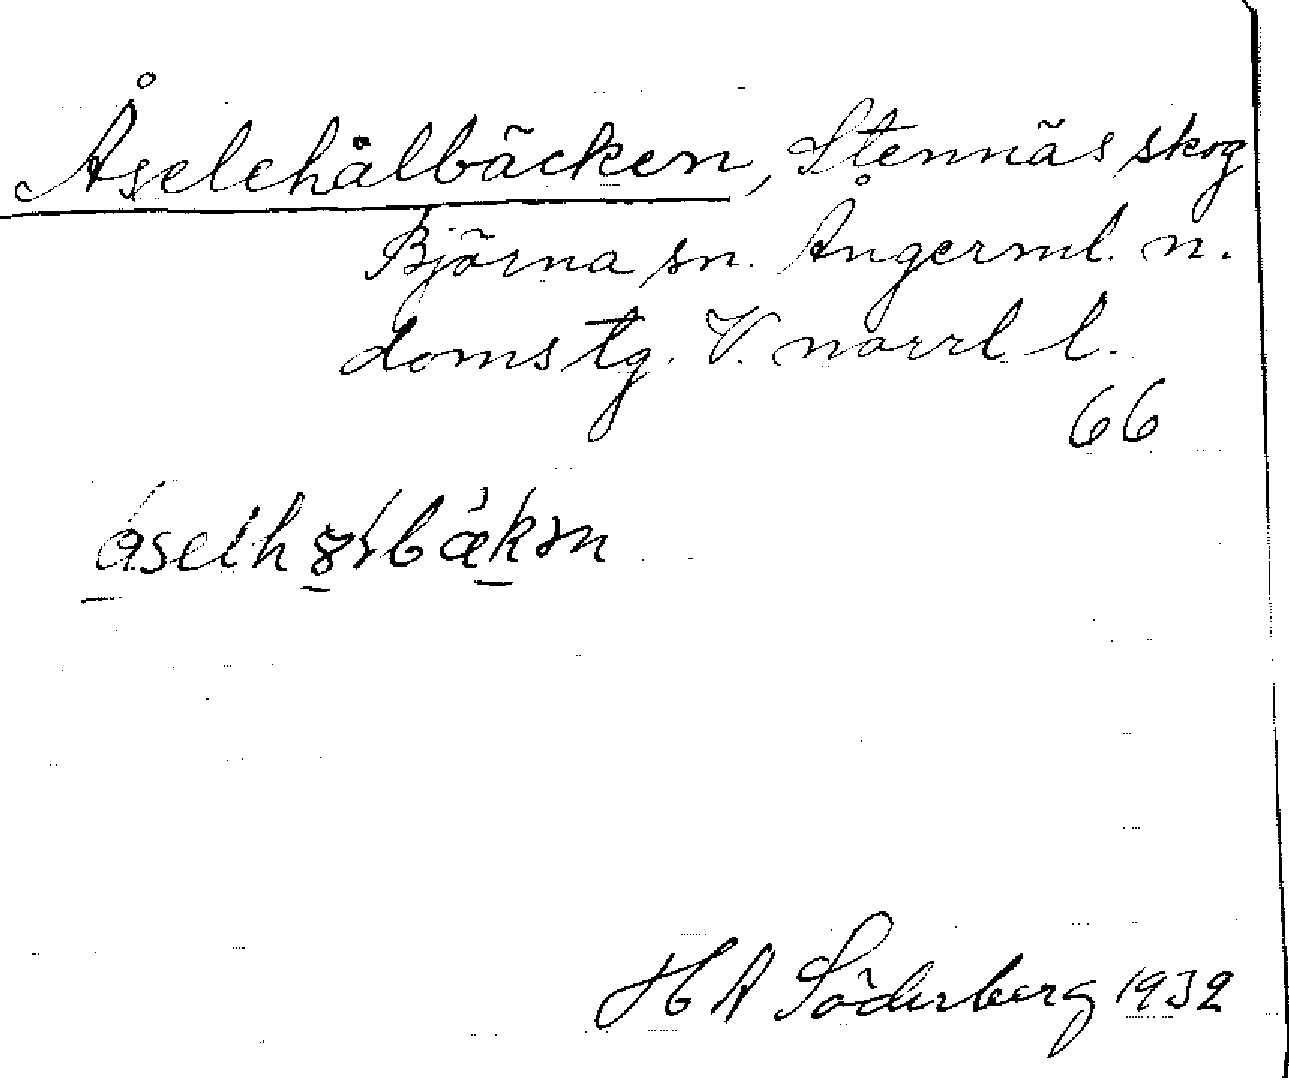 Åselehålbäcken, Stennäs skog
Björna sn. Ångerml. n.
domstg. V. norrl. l.
66
H A Söderberg 1932